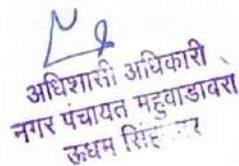 अधिशासी अधिकारी
नगर पंचायत महुवाडाबरा
ऊधम सिंह